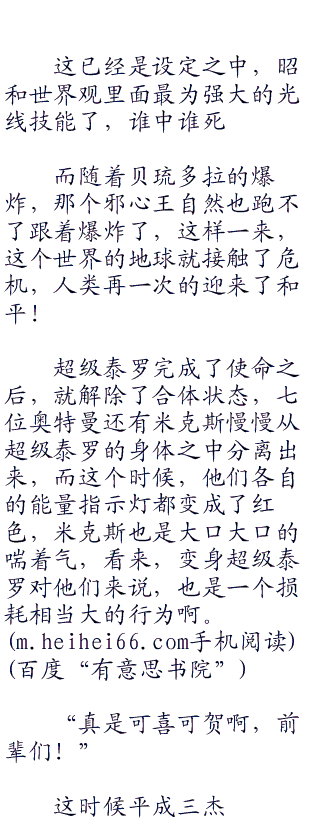 这已经是设定之中，昭
和世界观里面最为强大的光
线技能了，谁中谁死
而随着贝琉多拉的爆
炸，那个邪心王自然也跑不
了跟着爆炸了，这样一来，
这个世界的地球就接触了危
机，人类再一次的迎来了和
平！
超级泰罗完成了使命之
后，就解除了合体状态，七
位奥特曼还有米克斯慢慢从
超级泰罗的身体之中分离出
来，而这个时候，他们各自
的能量指示灯都变成了红
色，米克斯也是大口大口的
喘着气，看来，变身超级泰
罗对他们来说，也是一个损
耗相当大的行为啊。
(m.heihei66.com手机阅读)
(百度“有意思书院”)
“真是可喜可贺啊，前
辈们！”
这时候平成三杰